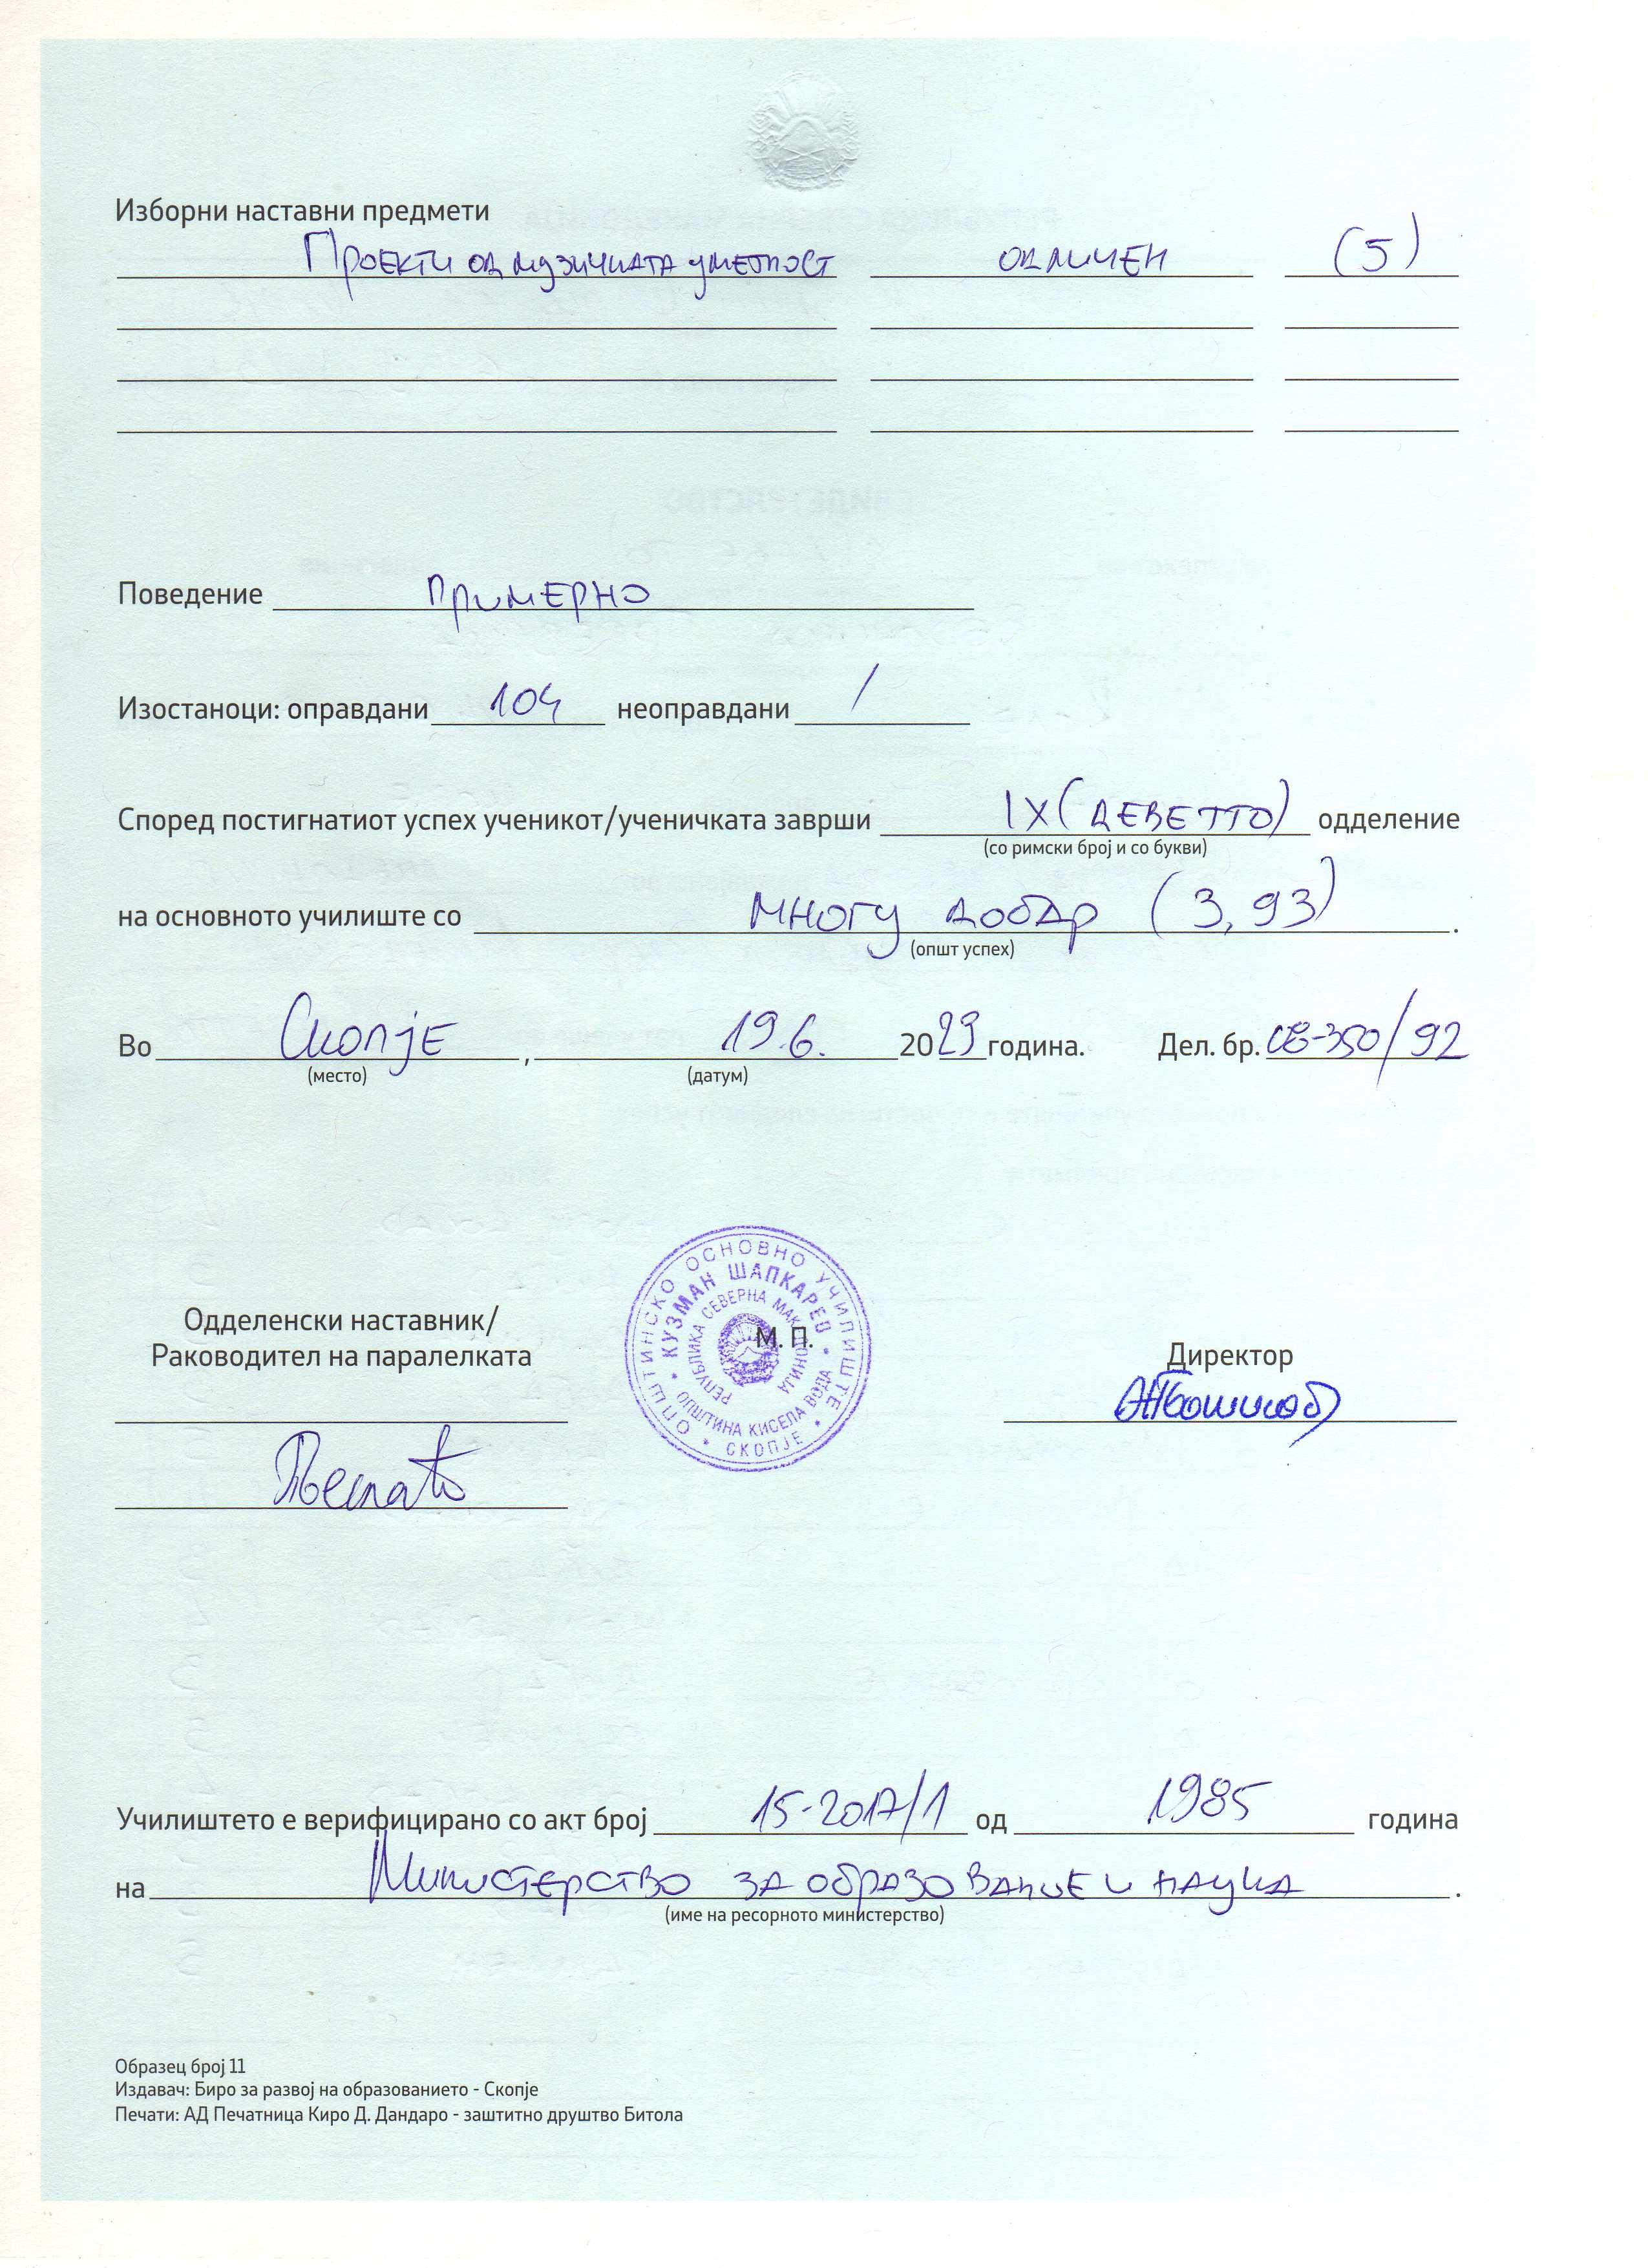 Изборни наставни предмети
Проекти од музичката уметност одличен (5)
Поведение примерно
Изостаноци: оправдани 104 неоправдани /
Според постигнатиот успех ученикот/ученичката заврши IX (деветто) одделение
(со римски број и со букви)
на основното училиште со многу добар (3,93).
(општ успех)
Во Скопје, 19.6. 2023 година. Дел. бр. СВ-350/92
(место) (датум)
ОПШТИНСКО ОСНОВНО УЧИЛИШТЕ
КУЗМАН ШАПКАРЕВ
РЕПУБЛИКА СЕВЕРНА МАКЕДОНИЈА
ОПШТИНА КИСЕЛА ВОДА
СКОПЈЕ
М. П.
Одделенски наставник/
Раководител на паралелката
Директор
Училиштето е верифицирано со акт број 15-2017/1 од 1985 година
на Министерство за образование и наука.
(име на ресорното министерство)
Образец број 11
Издавач: Биро за развој на образованието - Скопје
Печати: АД Печатница Киро Д. Дандаро - заштитно друштво Битола